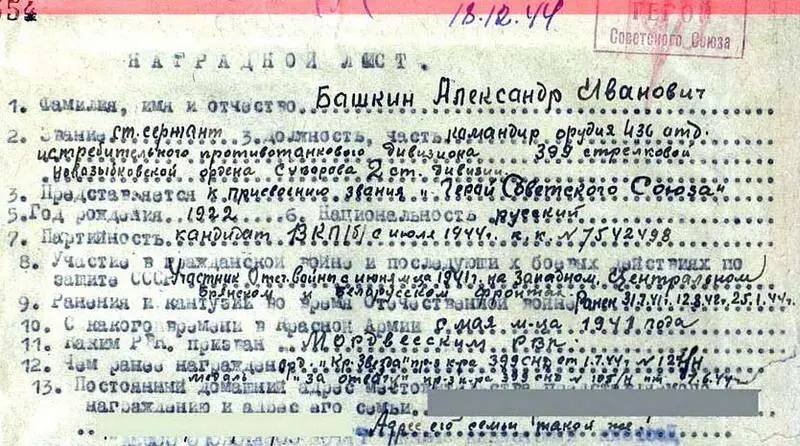 18.12.44
ГЕРОЙ
Советского Союза
НАГРАДНОЙ ЛИСТ.
1. Фамилия, имя и отчество Башкин Александр Иванович
2. Звание ст. сержант 3. должность, часть командир орудия 436 отд.
истребительного противотанкового дивизиона 399 стрелковой
новозыбковской ордена Суворова 2 ст. дивизии
3. Представляется к присвоению звания "Герой Советского Союза"
5. Год рождения 1922 6. Национальность русский
7. Партийность кандидат ВКП(б) с июля 1944г. к.к. N 7542498
8. Участие в гражданской войне и последующих боевых действиях по
защите СССР Участник Отеч. войны с июня м-ца 1941г. на Западном, Центральном
Брянском и Белорусском фронтах
9. Ранения и контузии во время Отечественной войне Ранен 12.8.42г. 25.1.44г.
10. С какого времени в Красной Армии с мая м-ца 1941 года
11. Каким РВК. призван Мордвесским РВК.
12. Чем ранее награжден орд. "Кр. Звезда" 399 от 1.7.44г.
медаль "За отвагу" 399
13. Постоянный домашний адрес
награждению и адрес его семьи.
Адрес его семьи такой же